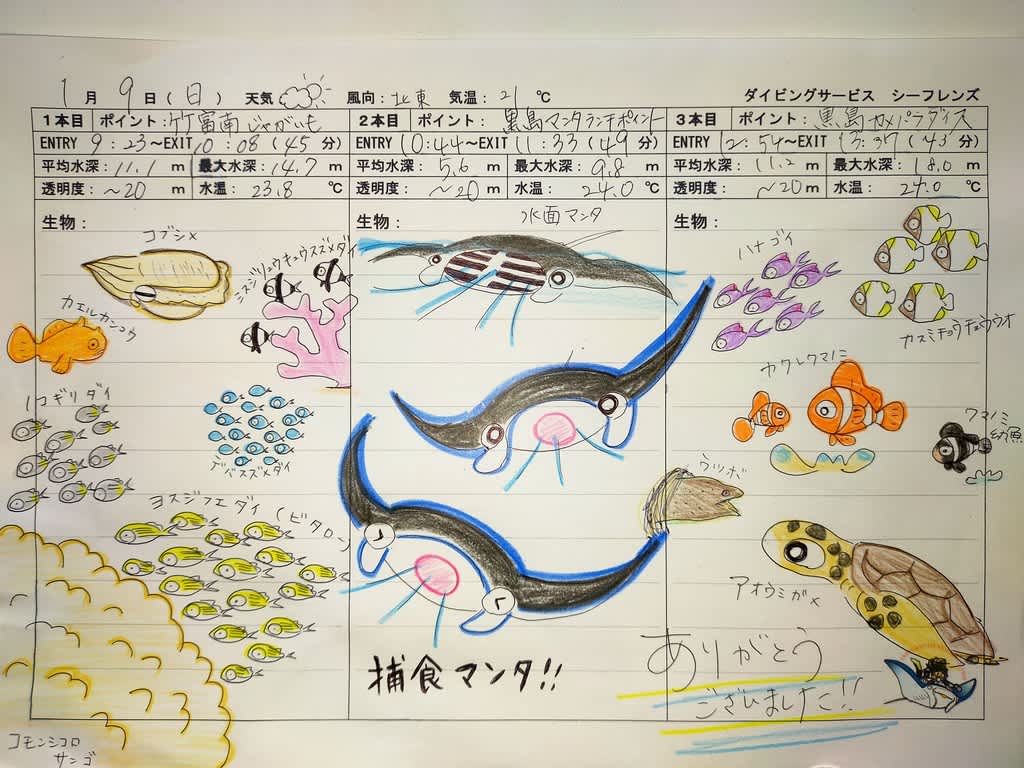 1月 9日(日) 天気 風向:北東 気温:21℃ ダイビングサービス シーフレンズ
1本目 ポイント:竹富南じゃがいも
ENTRY 9:23~EXIT 10:08(45分)
平均水深:11.1m 最大水深:14.7m
透明度:~20m 水温:23.8℃
生物:
コブシメ
ミスジリュウキュウスズメダイ
カエルアンコウ
ノコギリダイ
デバスズメダイ
ヨスジフエダイ(ビタロー)
コモンシコロ
サンゴ
2本目 ポイント:黒島マンタランチポイント
ENTRY 10:44~EXIT 11:33(49分)
平均水深:5.6m 最大水深:9.8m
透明度:~20m 水温:24.0℃
生物:
水面マンタ
捕食マンタ!!
3本目 ポイント:黒島カメパラダイス
ENTRY 12:54~EXIT 13:37(43分)
平均水深:11.2m 最大水深:18.0m
透明度:~20m 水温:24.0℃
生物:
ハナゴイ
カスミチョウチョウウオ
カクレクマノミ
クマノミ
幼魚
ウツボ
アオウミガメ
ありがとう
ございました!!